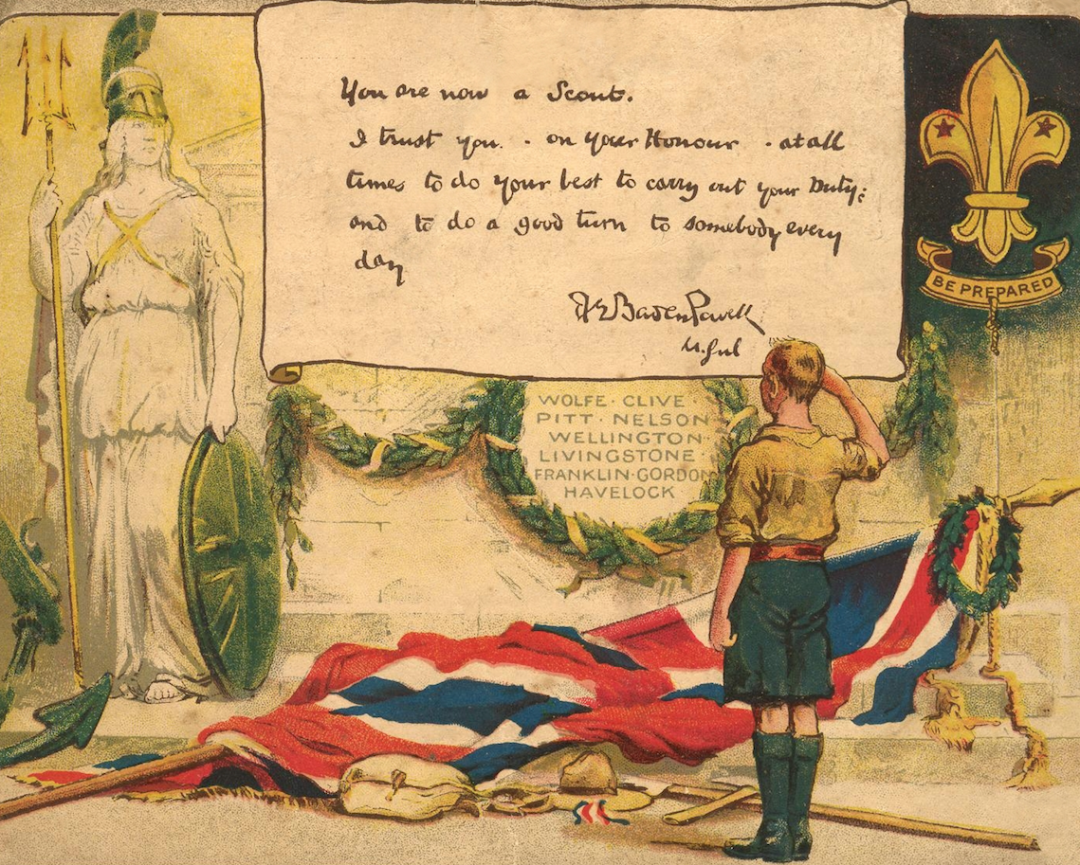 You are now a Scout.
I trust you. - on your Honour - at all
times to do your best to carry out your Duty:
and to do a good turn to somebody every
day
BE PREPARED
WOLFE · CLIVE ·
PITT · NELSON
WELLINGTON ·
LIVINGSTONE ·
FRANKLIN · GORDON
HAVELOCK
Baden Powell